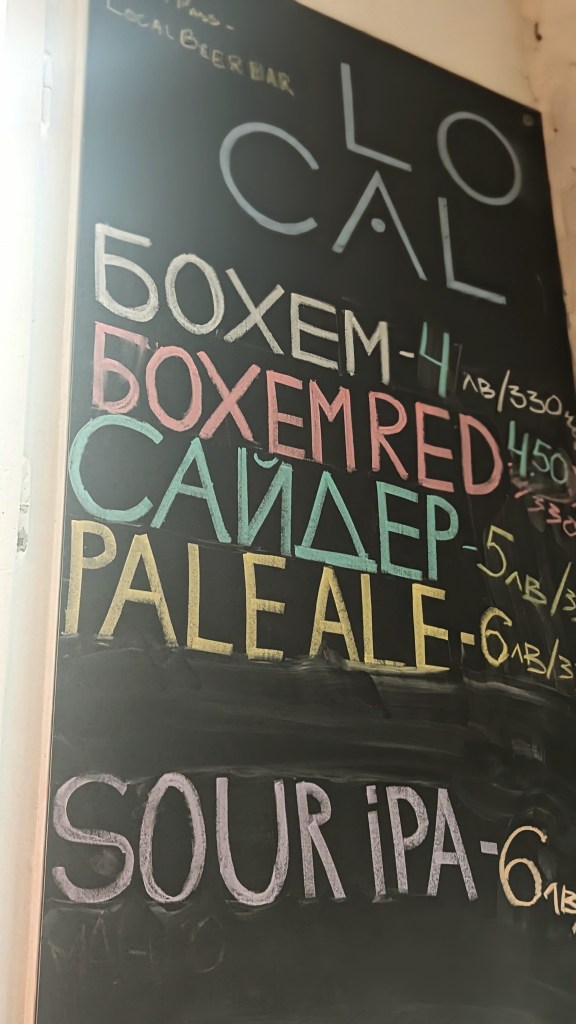 Local Beer Bar
LO
CAL
БОХЕМ - 4 лв/330
БОХЕМ RED 4.50
330
САЙДЕР - 5 лв/3
PALE ALE - 6 лв/3
SOUR iPA - 6 лв